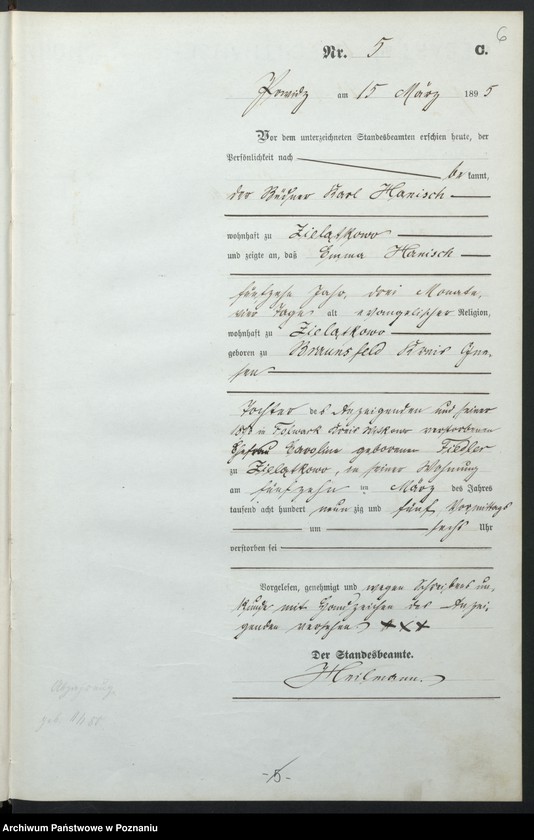 6
Nr. 5 C.
Powidz am 15 März 1895
Vor dem unterzeichneten Standesbeamten erschien heute, der
Persönlichkeit nach
bekannt,
der Büdner Karl Hanisch
wohnhaft zu Zielątkowo
und zeigte an, daß Emma Hanisch
fünfzehn Jahr, drei Monate,
vier Tage alt evangelischer Religion,
wohnhaft zu Zielątkowo
geboren zu Braunsfeld Kreis Gne-
sen
Tochter des Anzeigenden und seiner
in Folwark Kreis Witkowo verstorbenen
Ehefrau Caroline geborenen Fiedler
zu Zielątkowo, in seiner Wohnung
am fünfzehn ten März des Jahres
tausend acht hundert neun zig und fünf Vormittags
um sechs Uhr
verstorben sei
Vorgelesen, genehmigt und wegen Schreibens un-
kunde mit Handzeichen des Anzei-
genden versehen XXX
Der Standesbeamte.
Heilmann.
-5-
Archiwum Państwowe w Poznaniu